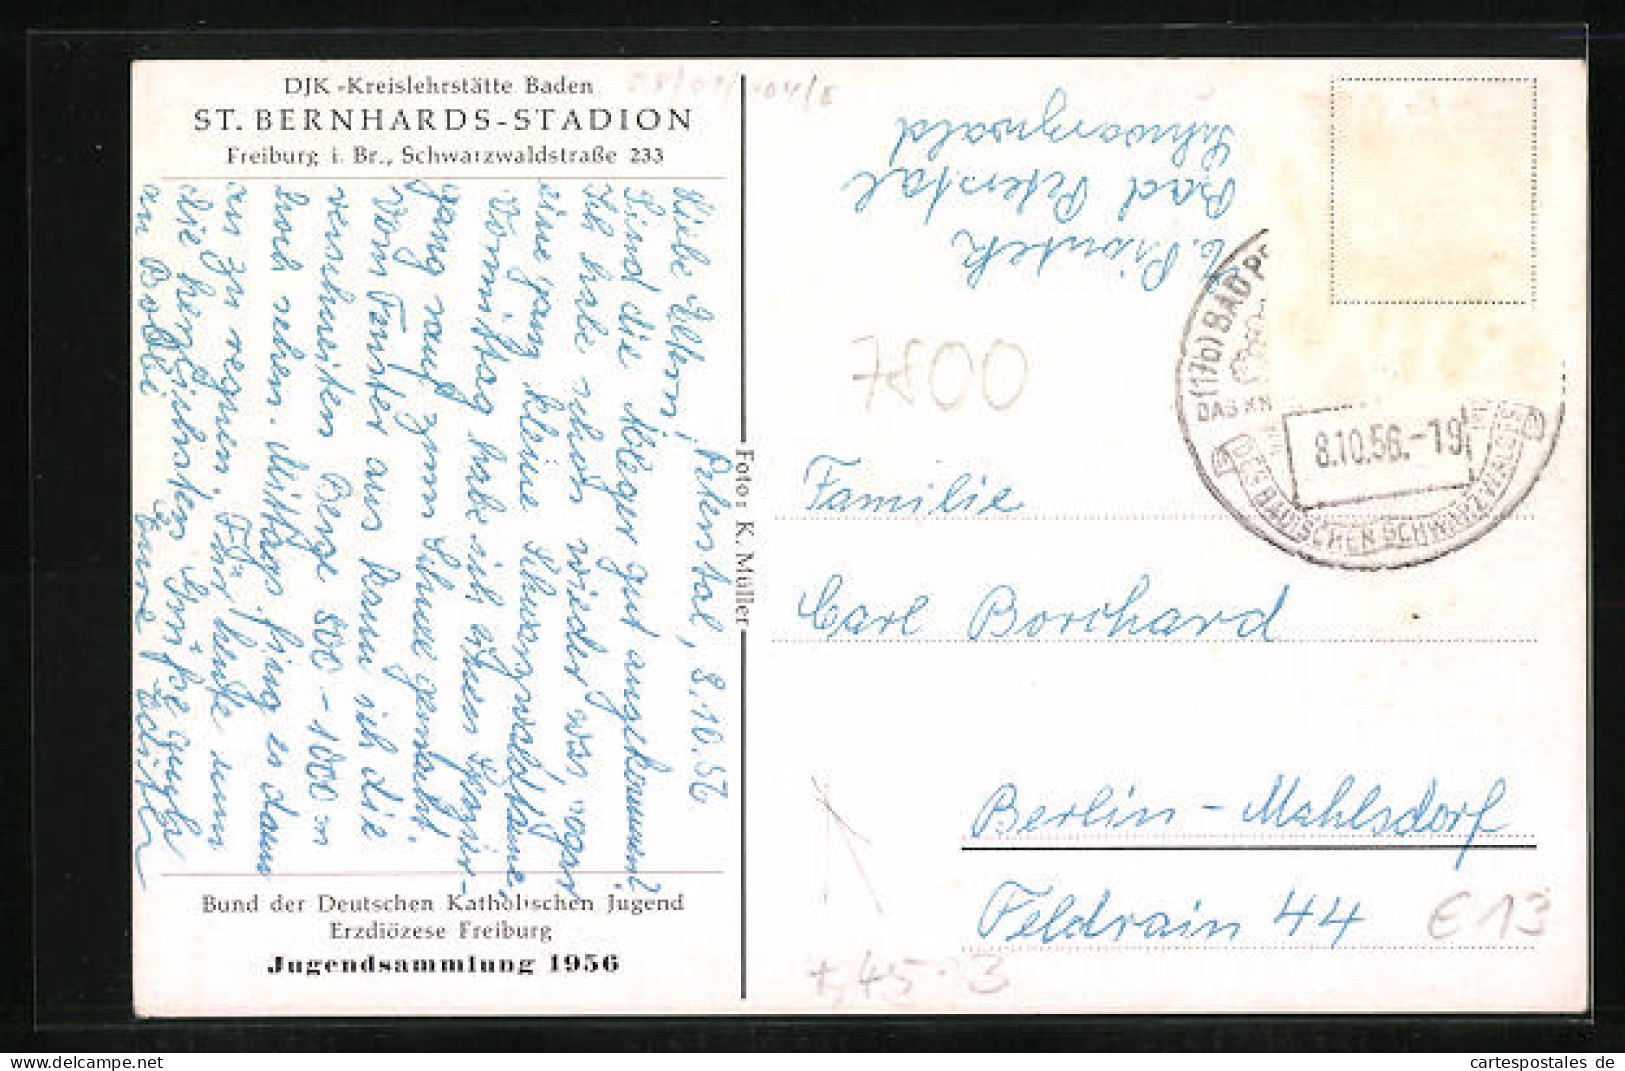 DJK-Kreislehrstätte Baden
ST. BERNHARDS-STADION
Freiburg i. Br., Schwarzwaldstraße 233
Peterstal, 8.10.56
Liebe Eltern!
Sind die gut angekommen?
Ich habe schon wieder was
eine ganz kleine Schwarzwaldtanne,
Vormittag habe ich einen
gang rauf zum gemacht.
Vom Fenster aus kann ich die
verschneiten Berge 800-1000 m
hoch sehen. Mittags fing es dann
an zu regnen. Für heute nun
die herzlichsten Grüße auch
an Bobbi Eure Edith
Bund der Deutschen Katholischen Jugend
Erzdiözese Freiburg
Jugendsammlung 1956
Foto: K. Müller
Bad Peterstal
Schwarzwald
7800
(17b) BAD PE
DAS KN
8.10.56.-19
DES BADISCHEN SCHWARZWALDES
Familie
Carl Borchard
Berlin-Mahlsdorf
Feldrain 44
E 13
THE BEST OF POSTCARDS
cartespostales de